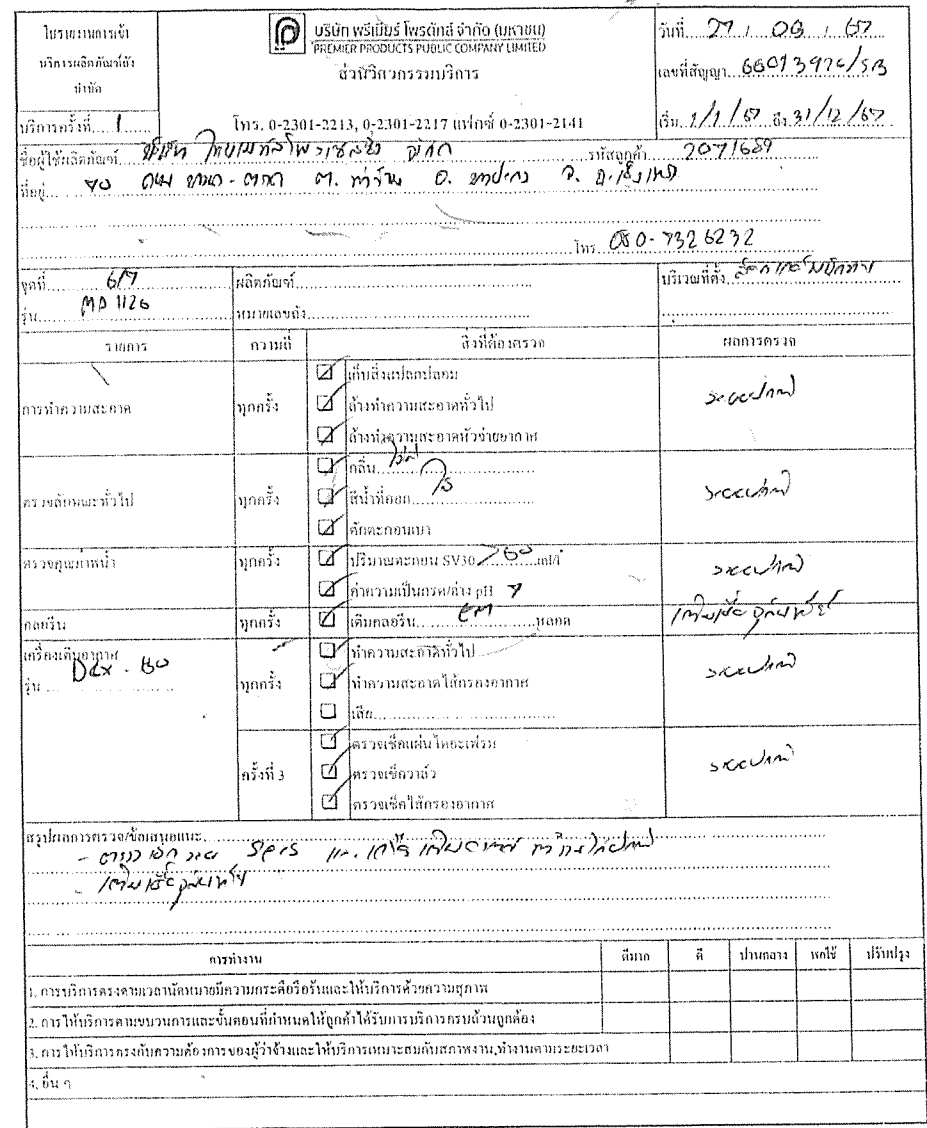 ใบรายงานการเข้า
บริการผลิตภัณฑ์ถัง
บำบัด
บริการครั้งที่ 1
บริษัท พรีเมียร์ โพรดักส์ จำกัด (มหาชน)
PREMIER PRODUCTS PUBLIC COMPANY LIMITED
ส่วนวิศวกรรมบริการ
โทร. 0-2301-2213, 0-2301-2217 แฟกซ์ 0-2301-2141
วันที่ 27 / 03 / 67
เลขที่สัญญา 66013976/SB
เริ่ม 1/1/67 ถึง 31/12/67
ชื่อผู้ใช้ผลิตภัณฑ์ บริษัท ไทยเมทัลโพรเซสซิ่ง จำกัด รหัสลูกค้า 2071689
ที่อยู่ 90 ถนน บางนา-ตราด ต. ท่าข้าม อ. บางปะกง จ. ฉะเชิงเทรา
โทร. 080-7326232
จุดที่ 6/7 ผลิตภัณฑ์ บริเวณที่ตั้ง
รุ่น MD 1126 หมายเลขถัง
รายการ ความถี่ สิ่งที่ต้องตรวจ ผลการตรวจ
การทำความสะอาด ทุกครั้ง
☑ เก็บสิ่งแปลกปลอม
☑ ล้างทำความสะอาดทั่วไป ระบบปกติ
☑ ล้างทำความสะอาดหัวจ่ายอากาศ
ตรวจลักษณะทั่วไป ทุกครั้ง
☑ กลิ่น ไม่มี
☑ สีน้ำที่ออก ใส ระบบปกติ
☑ ตักตะกอนเบา
ตรวจคุณภาพน้ำ ทุกครั้ง
☑ ปริมาณตะกอน SV30 760 ml/l ระบบปกติ
☑ ค่าความเป็นกรด/ด่าง pH 7
คลอรีน ทุกครั้ง ☑ เติมคลอรีน EM หลอด เติมเชื้อจุลินทรีย์
เครื่องเติมอากาศ
รุ่น ทุกครั้ง
☑ ทำความสะอาดทั่วไป
☑ ทำความสะอาดไส้กรองอากาศ ระบบปกติ
☐ เสีย
ครั้งที่ 3
☑ ตรวจเช็คแผ่นไดอะเฟรม
☑ ตรวจเช็ควาล์ว ระบบปกติ
☑ ตรวจเช็คไส้กรองอากาศ
สรุปผลการตรวจ/ข้อเสนอแนะ
- เติมเชื้อจุลินทรีย์
การทำงาน ดีมาก ดี ปานกลาง พอใช้ ปรับปรุง
1. การบริการตรงตามเวลานัดหมายมีความกระตือรือร้นและให้บริการด้วยความสุภาพ
2. การให้บริการตามขบวนการและขั้นตอนที่กำหนดให้ลูกค้าได้รับการบริการครบถ้วนถูกต้อง
3. การให้บริการตรงกับความต้องการของผู้ว่าจ้างและให้บริการเหมาะสมกับสภาพงาน,ทำงานตามระยะเวลา
4. อื่น ๆ